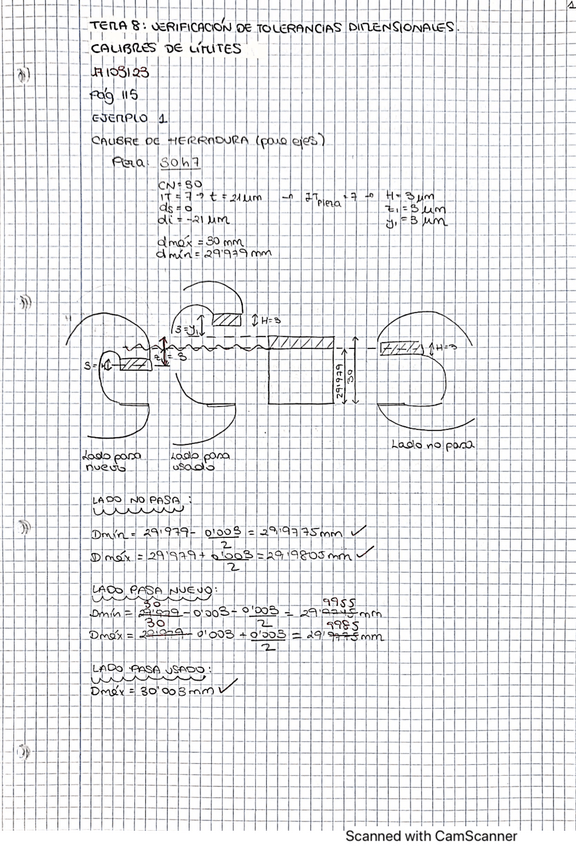 1
TEMA 8: VERIFICACIÓN DE TOLERANCIAS DIMENSIONALES.
CALIBRES DE LÍMITES
17103123
Pág 115
EJEMPLO 1
CALIBRE DE HERRADURA (para ejes)
Pieza: 30h7
CN = 30
IT = 7 → t = 21 μm → IT pieza = 7 → H = 3 μm
ds = 0 z₁ = 3 μm
di = -21 μm y₁ = 3 μm
dmáx = 30 mm
dmín = 29'979 mm
3 = y₁ H=3
H=3
= 3
29'979
30
Lado pasa nuevo
Lado pasa usado
Lado no pasa
LADO NO PASA:
Dmín = 29'979 - 0'003/2 = 29'9775 mm ✓
Dmáx = 29'979 + 0'003/2 = 29'9805 mm ✓
LADO PASA NUEVO:
Dmín = 30 - 0'003 - 0'003/2 = 29'9955 mm
Dmáx = 30 - 0'003 + 0'003/2 = 29'9985 mm
LADO PASA USADO:
Dmáx = 30'003 mm ✓
Scanned with CamScanner